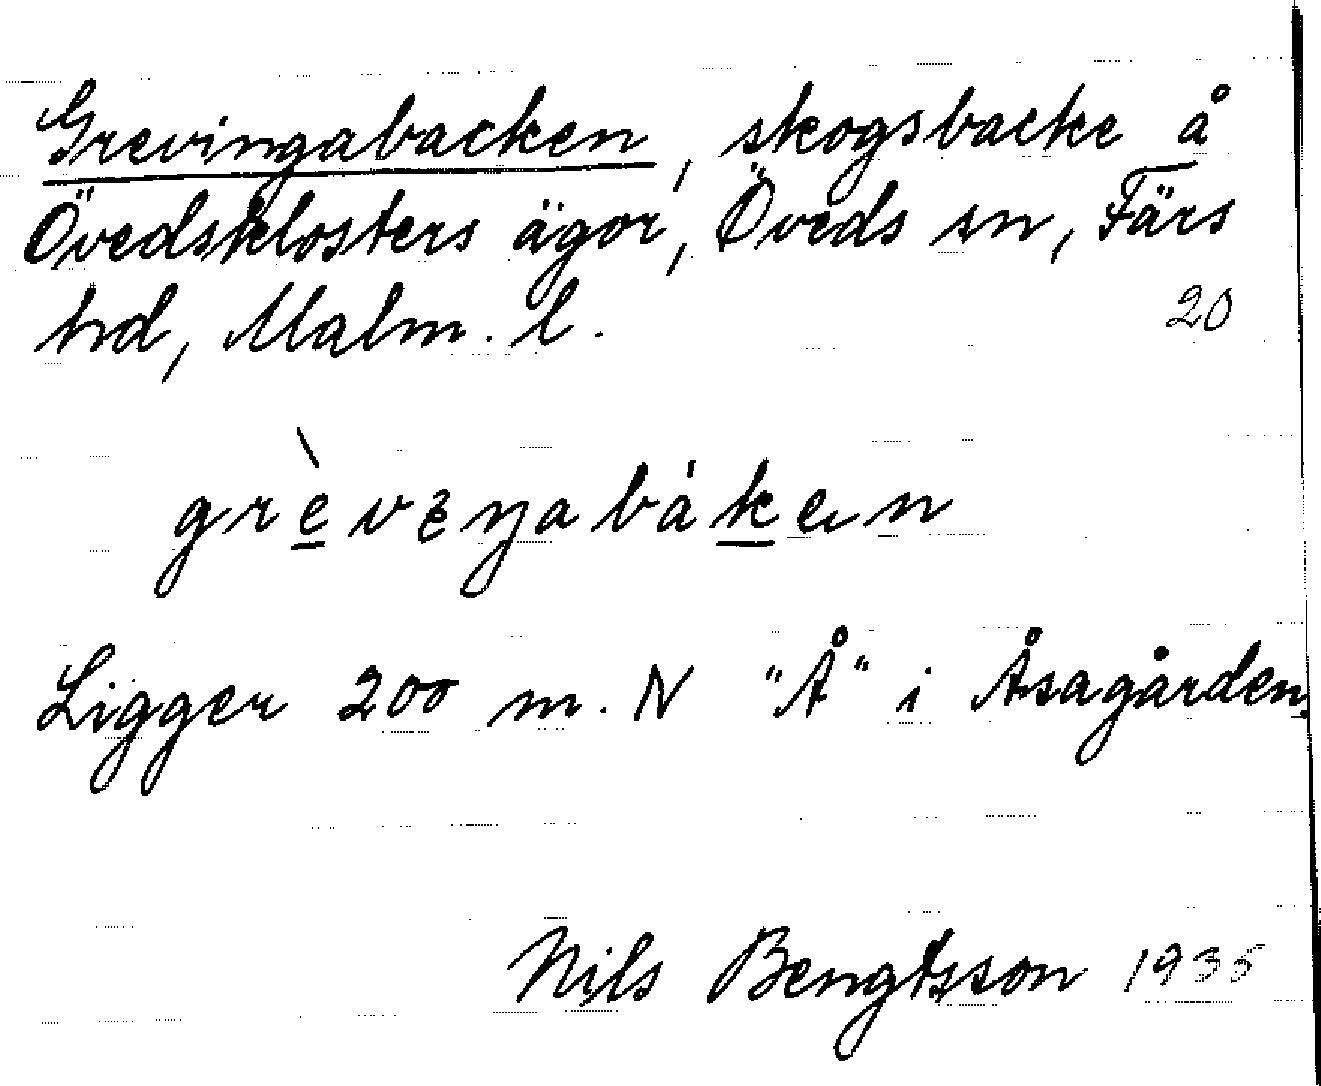 Grevingabacken, skogsbacke å
Övedsklosters ägor, Öveds sn, Färs
hd, Malm. l. 20
grèveŋabáken
Ligger 200 m. N "Å" i Åsagården.
Nils Bengtsson 1935